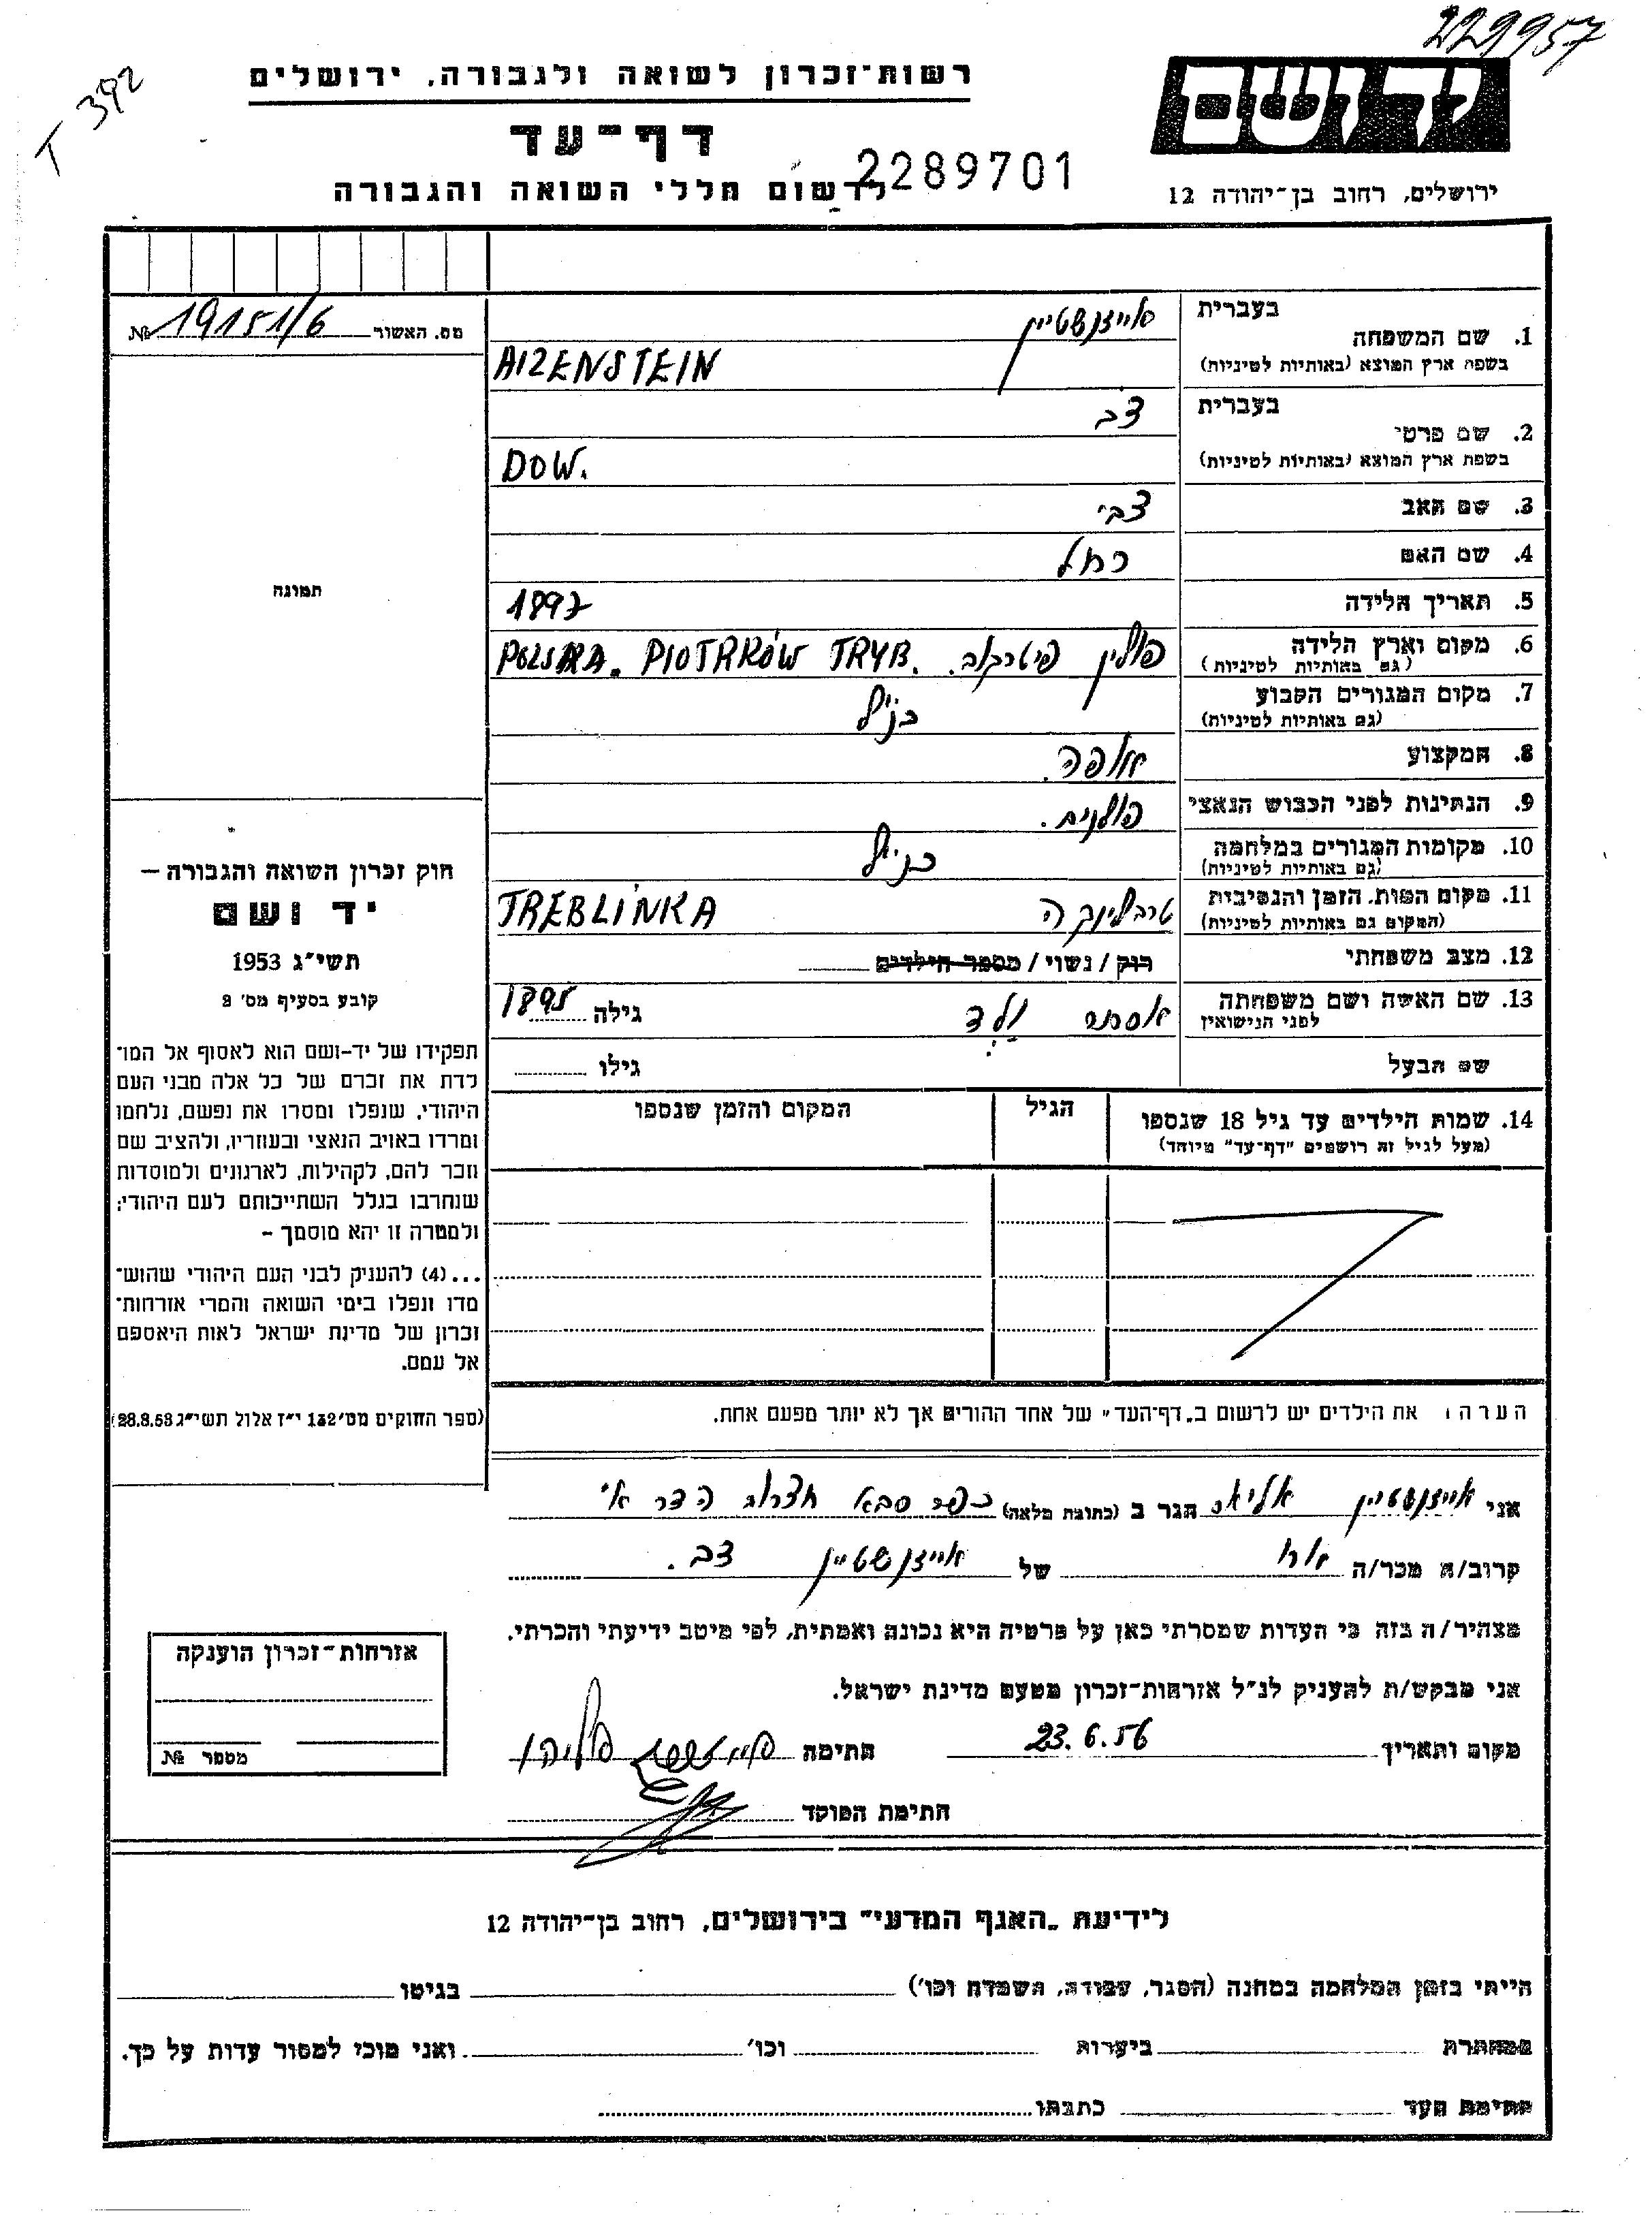 229957
T 392
יד ושם
ירושלים, רחוב בן־יהודה 12
רשות־זכרון לשואה ולגבורה, ירושלים
דף־עד
לרשום חללי השואה והגבורה
2289701
מס. האשור 19151/6 №
תמונה
חוק זכרון השואה והגבורה —
יד ושם
תשי״ג 1953
קובע בסעיף מס׳ 2
תפקידו של יד-ושם הוא לאסוף אל המו־
לדת את זכרם של כל אלה מבני העם
היהודי, שנפלו ומסרו את נפשם, נלחמו
ומרדו באויב הנאצי ובעוזריו, ולהציב שם
וזכר להם, לקהילות, לארגונים ולמוסדות
שנחרבו בגלל השתייכותם לעם היהודי;
ולמטרה זו יהא מוסמך –
...(4) להעניק לבני העם היהודי שהוש־
מדו ונפלו בימי השואה והמרי אזרחות־
זכרון של מדינת ישראל לאות היאספם
אל עמם.
(ספר החוקים מס׳ 132 י״ז אלול תשי״ג 28.8.53)
בעברית אייזנשטיין
1. שם המשפחה
בשפת ארץ המוצא (באותיות לטיניות) AIZENSTEIN
בעברית דב
2. שם פרטי
בשפת ארץ המוצא (באותיות לטיניות) DOW.
3. שם האב צבי
4. שם האם רחל
5. תאריך הלידה 1897
6. מקום וארץ הלידה פולין פיטרקוב. POLSKA. PIOTRKÓW TRYB.
(גם באותיות לטיניות)
7. מקום המגורים הקבוע כנ״ל
(גם באותיות לטיניות)
8. המקצוע אופה.
9. הנתינות לפני הכבוש הנאצי פולנית.
10. מקומות המגורים במלחמה כנ״ל
(גם באותיות לטיניות)
11. מקום המות, הזמן והנסיבות טרבלינקה TREBLINKA
(המקום גם באותיות לטיניות)
12. מצב משפחתי רוק / נשוי / מספר הילדים
13. שם האשה ושם משפחתה לפני הנישואין אסתר גילה 1895
שם הבעל גילו
14. שמות הילדים עד גיל 18 שנספו הגיל המקום והזמן שנספו
(מעל לגיל זה רושמים "דף־עד" מיוחד)
הערה: את הילדים יש לרשום ב„דף־העד" של אחד ההורים אך לא יותר מפעם אחת.
אני אייזנשטיין אליהו הגר ב (כתובת מלאה) כפר סבא חצרות הדר א׳
קרוב/ה מכר/ה אח של אייזנשטיין דב.
מצהיר/ה בזה כי העדות שמסרתי כאן על פרטיה היא נכונה ואמתית, לפי מיטב ידיעתי והכרתי.
אני מבקש/ת להעניק לנ״ל אזרחות־זכרון מטעם מדינת ישראל.
מקום ותאריך 23.6.56 חתימה
חתימת הפוקד
אזרחות־זכרון הוענקה
מספר №
לידיעת „האגף המדעי" בירושלים, רחוב בן־יהודה 12
הייתי בזמן המלחמה במחנה (הסגר, עבודה, השמדה וכו׳) בגיטו
במחתרת ביערות וכו׳ ואני מוכן למסור עדות על כך.
חתימת העד כתבתו